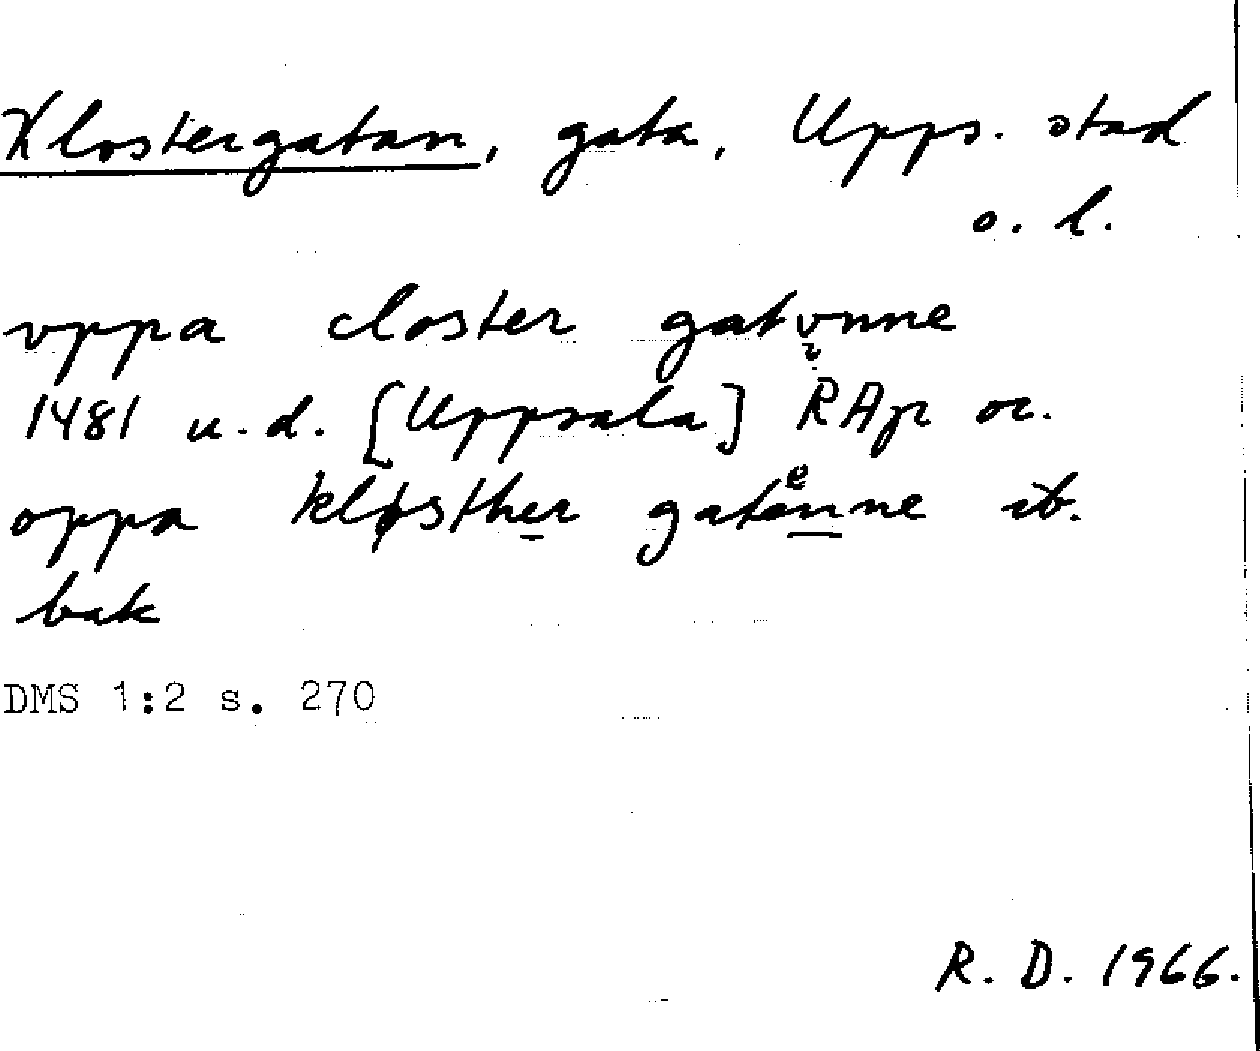 Klostergatan, gata, Upps. stad
o. l.
vppa closter gatvnne
1481 u.d. [Uppsala] RAp or.
oppa kløsther gatænne ib.
bak
DMS 1:2 s. 270
R. D. 1966.